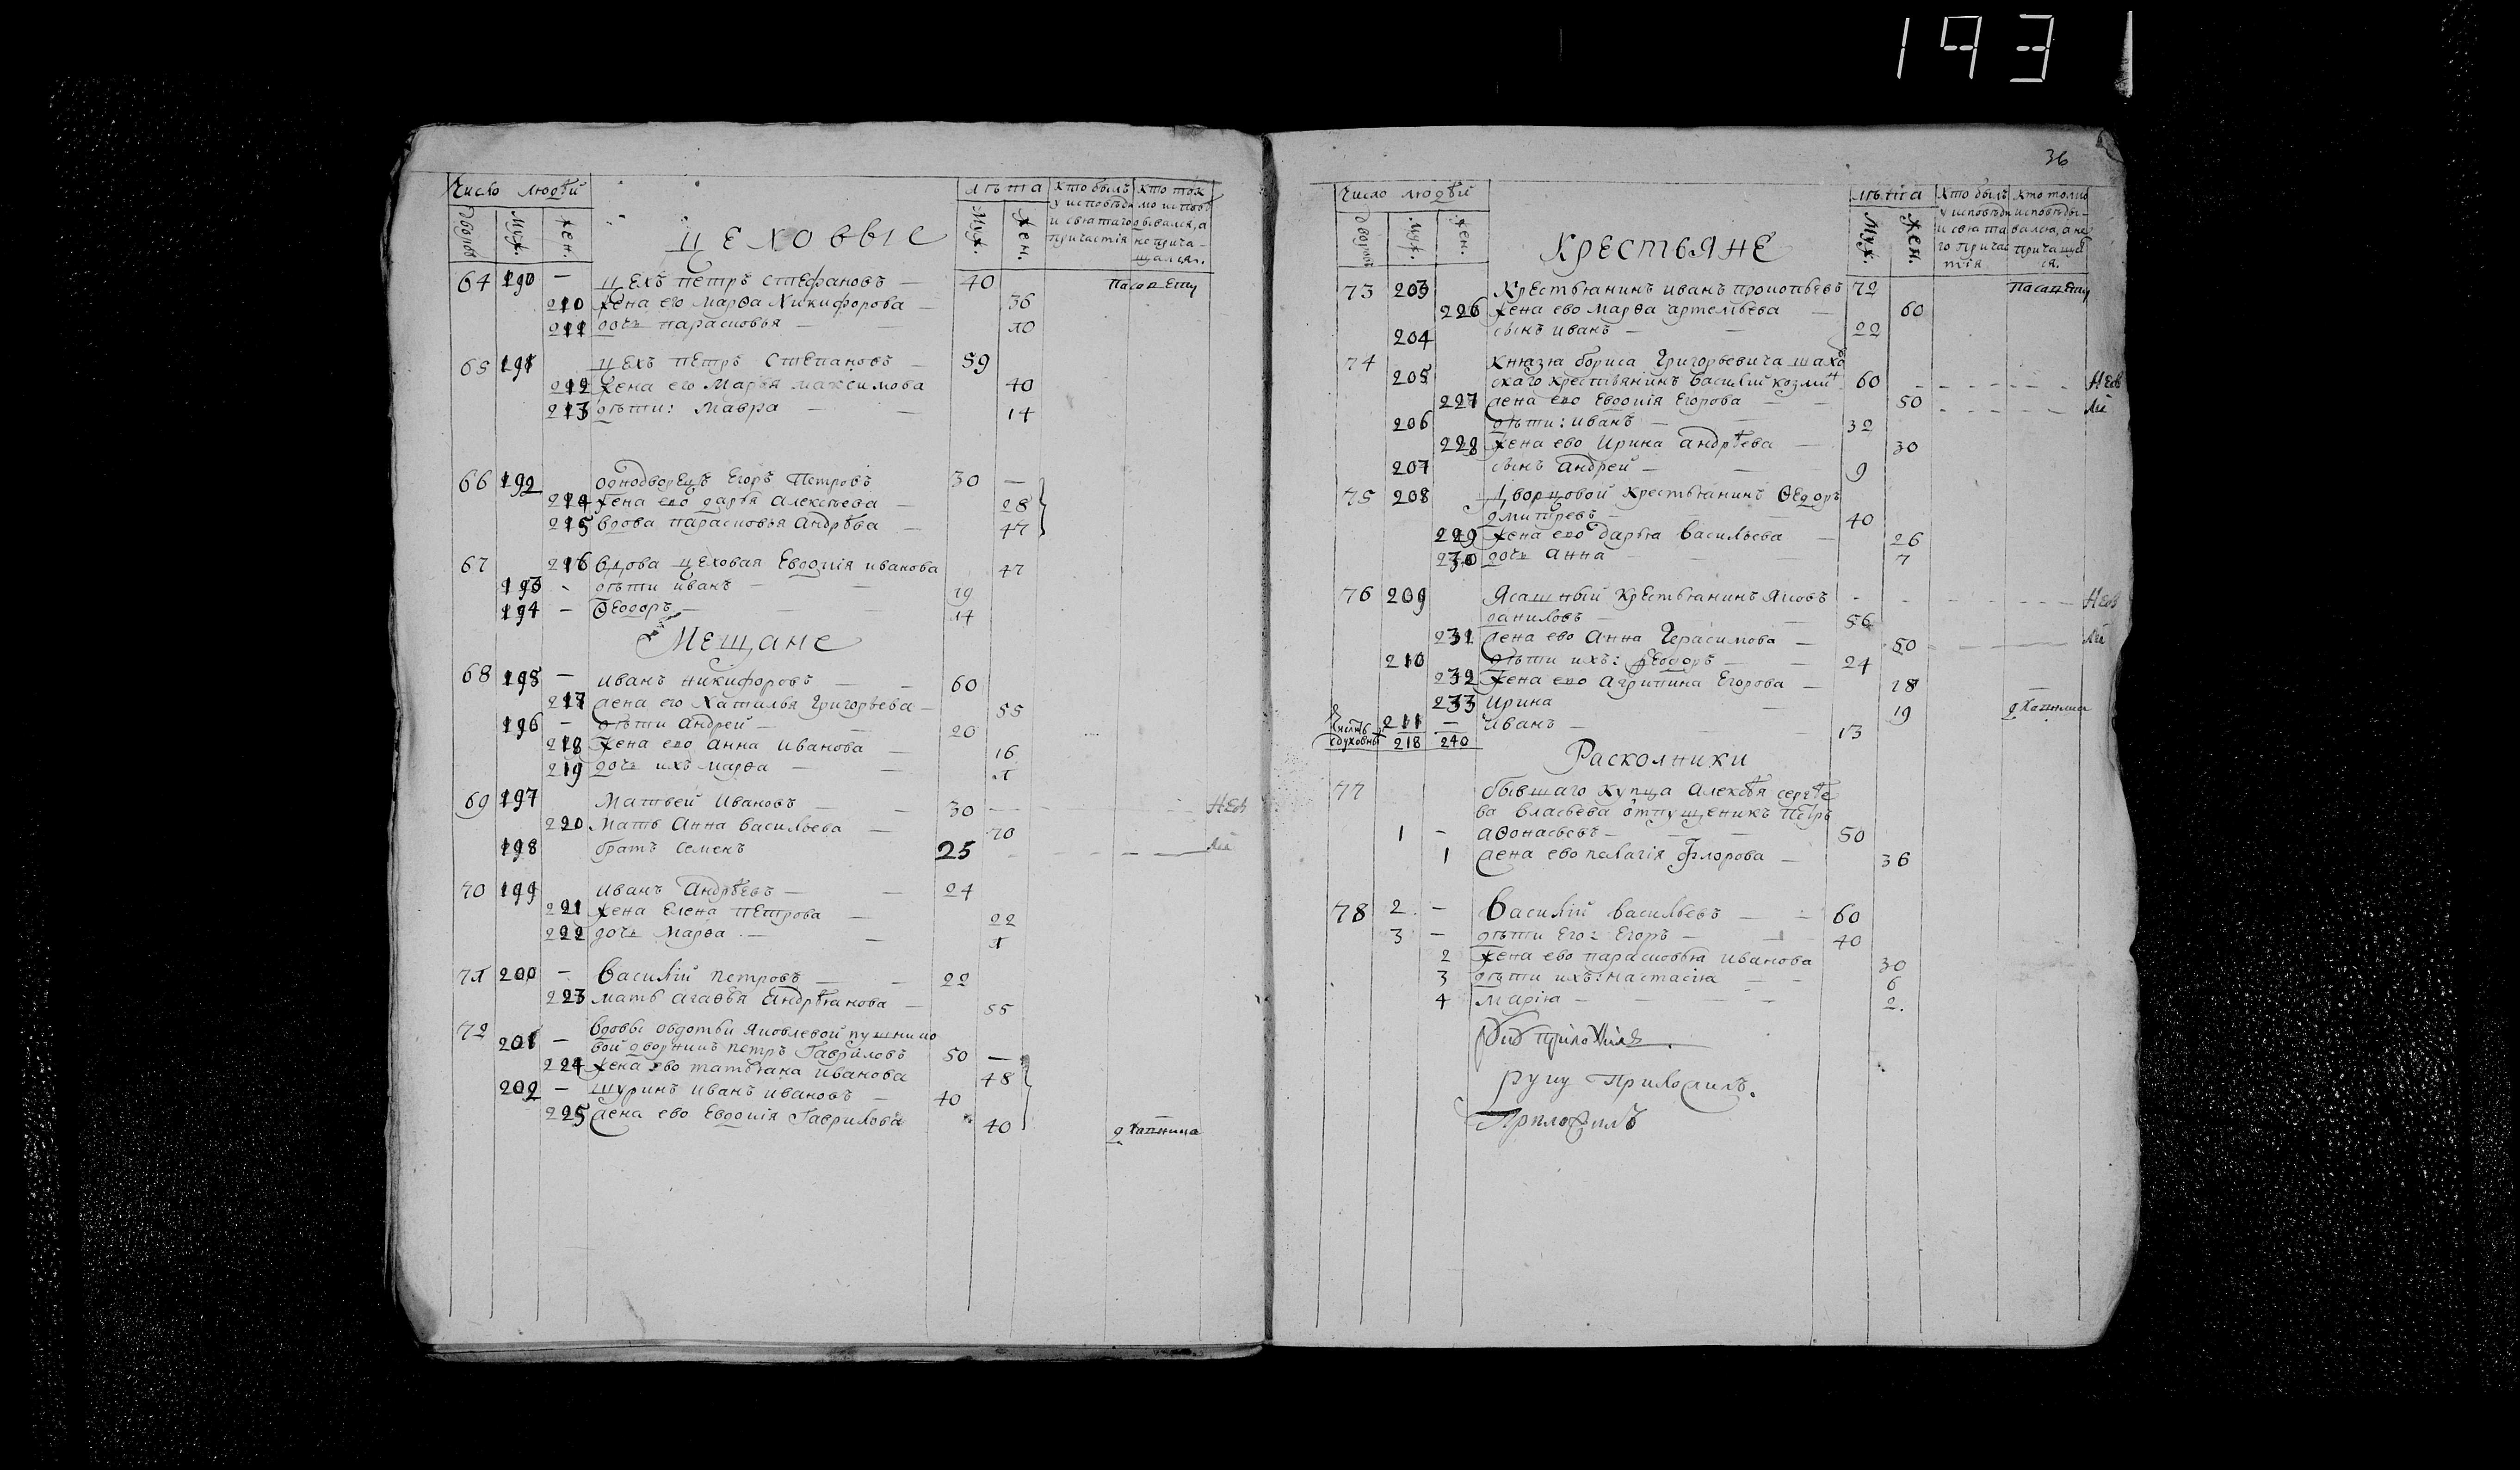 1931
Число людей
Дворов Муж. Жен.
Цеховые
лѣта
Муж. Жен.
Кто былъ у исповѣди и святаго причастія
Кто ток мо исповѣ дывался, а не прича- щался.
64 190 — Цехъ Петръ Стефановъ — 40
210 жена его Марѳа Никифорова — 36
211 дочь Парасковья — — 10
65 191 Цехъ Петръ Степановъ — 59
212 жена его Марья Максимова 40
213 дѣти: Мавра — — 14
66 192 Однодворецъ Егоръ Петровъ 30 —
214 жена ево Дарья Алексѣева — 28
215 вдова Парасковья Андрѣева — 47
67 216 Вдова цеховая Евдокія Иванова 47
193 - дѣти Иванъ — — 19
194 — Ѳеодоръ — — 14
Мещане
68 195 — Иванъ Никифоровъ — — 60
217 жена его Наталья Григорьева — 55
196 — дѣти Андрей — — 20
218 жена ево Анна Иванова — 16
219 дочь ихъ Марѳа — — 1
69 197 Матвей Ивановъ — — 30
220 Мать Анна Васильева — 70
198 братъ Семенъ 25
70 199 Иванъ Андрѣевъ — — 24
221 жена Елена Петрова — 22
222 дочь Марѳа — — 1
71 200 — Василій Петровъ — — 22
223 мать Агаѳья Андрѣянова — 55
72 вдовы Авдотьи Яковлевой Пушнико
201 — вой дворникъ Петръ Гавриловъ 50 —
224 жена ево Татьяна Иванова 48
202 — шуринъ Иванъ Ивановъ — 40
225 жена ево Евдокія Гаврилова 40
36
Число людей
Дворов Муж. Жен.
Крестьяне
лѣта
Муж. Жен.
Кто былъ у исповѣди и свята го причас тія
Кто толко исповѣды- вался, а не причащал ся.
73 203 Крестьянинъ Иванъ Прокофьевъ 72
226 жена ево Марѳа Артемьева — 60
204 сынъ Иванъ — — 22
74 Князя Бориса Григорьевича Шахо
205 скаго крестьянинъ Василій Козмин 60
227 жена ево Евдокія Егорова — 50
206 дѣти: Иванъ — — 32
228 жена ево Ирина Андрѣева — 30
207 сынъ Андрей — — 9
75 208 Дворцовой крестьянинъ Ѳедоръ
Дмитревъ — — 40
229 жена ево Дарья Васильева — 26
230 дочь Анна — — 7
76 209 Ясашный крестьянинъ Яковъ
Даниловъ — — 56
231 жена ево Анна Герасимова — 50
210 дѣти ихъ: Ѳеодоръ — — 24
232 жена ево Агрипина Егорова — 18
233 Ирина — 19
211 — Иванъ — — 13
218 240
Раскольники
77 бывшаго купца Алексѣя Сергѣе
ва Власьева отпущеникъ Петръ
1 - Аѳонасьевъ — — 50
1 жена ево Пелагія Флорова — 36
78 2 — Василій Васильевъ — — 60
3 — дѣти его: Егоръ — — 40
2 жена ево Парасковья Иванова 30
3 дѣти ихъ: Настасія — - 6
4 Марія — — — 2.
руку Приложилъ.
Приложилъ